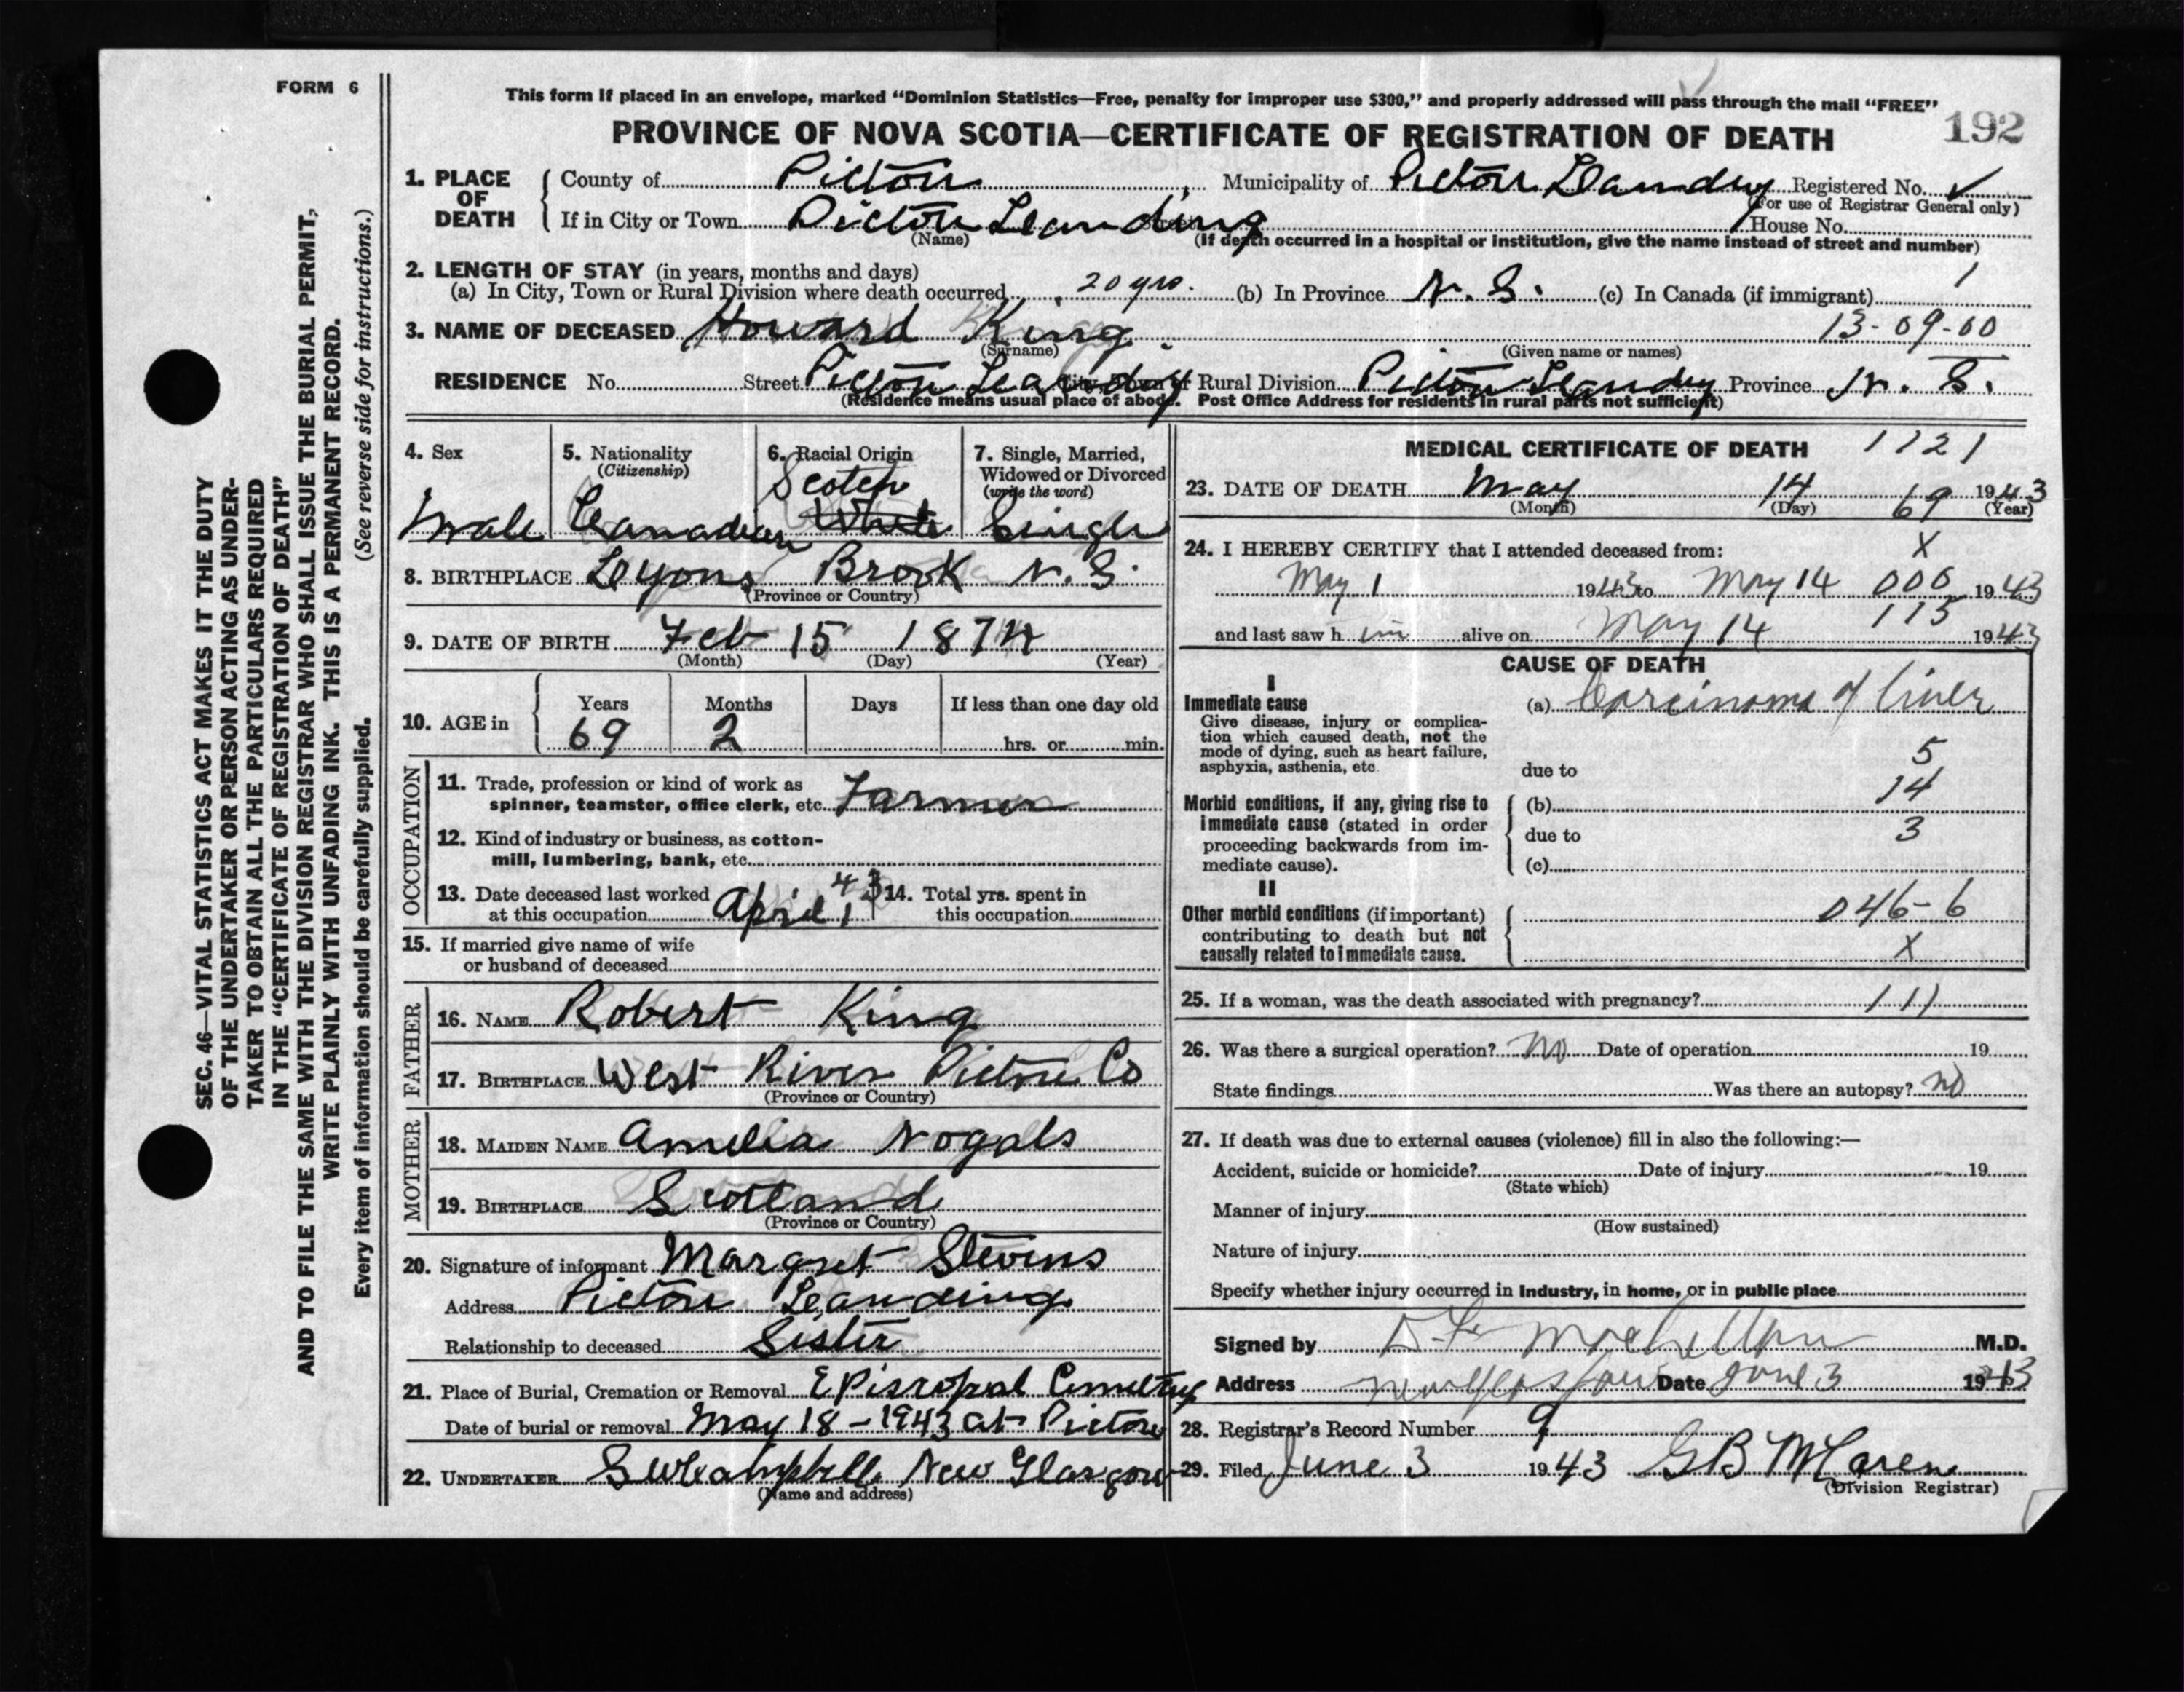 FORM 6
This form if placed in an envelope, marked "Dominion Statistics—Free, penalty for improper use $300," and properly addressed will pass through the mail "FREE"
PROVINCE OF NOVA SCOTIA—CERTIFICATE OF REGISTRATION OF DEATH 192
1. PLACE OF DEATH
County of Pictou Municipality of Pictou Leandey Registered No. ✓
(For use of Registrar General only)
If in City or Town Pictou Leanding House No.
(Name) (If death occurred in a hospital or institution, give the name instead of street and number)
2. LENGTH OF STAY (in years, months and days) 1
(a) In City, Town or Rural Division where death occurred 20 yrs. (b) In Province N. S. (c) In Canada (if immigrant)
3. NAME OF DECEASED Howard King 13-09-00
(Surname) (Given name or names)
RESIDENCE No. Street Pictou Leandey Rural Division Pictou Leandey Province N. S.
(Residence means usual place of abode. Post Office Address for residents in rural parts not sufficient)
4. Sex
Male
5. Nationality
(Citizenship)
Canadian
6. Racial Origin
Scotch
White
7. Single, Married, Widowed or Divorced
(write the word)
Single
8. BIRTHPLACE Lyons Brook N. S.
(Province or Country)
9. DATE OF BIRTH Feb 15 1874
(Month) (Day) (Year)
10. AGE in Years Months Days If less than one day old
69 2 hrs. or min.
OCCUPATION
11. Trade, profession or kind of work as
spinner, teamster, office clerk, etc. Farmer
12. Kind of industry or business, as cotton-
mill, lumbering, bank, etc.
13. Date deceased last worked at this occupation April, 43
14. Total yrs. spent in this occupation
15. If married give name of wife
or husband of deceased
FATHER
16. NAME Robert King
17. BIRTHPLACE West River Pictou Co
(Province or Country)
MOTHER
18. MAIDEN NAME Amelia Nogals
19. BIRTHPLACE Scotland
(Province or Country)
20. Signature of informant Margret Stevens
Address Pictou Leanding
Relationship to deceased Sister
21. Place of Burial, Cremation or Removal Episcopal Cemetry
Date of burial or removal May 18-1943 at Pictou
22. UNDERTAKER S W Campbell New Glasgow
(Name and address)
MEDICAL CERTIFICATE OF DEATH 1121
23. DATE OF DEATH May 14 69 1943
(Month) (Day) (Year)
24. I HEREBY CERTIFY that I attended deceased from: X
May 1 1943 to May 14 000 1943
115
and last saw h im alive on May 14 1943
CAUSE OF DEATH
I
Immediate cause (a) Carcinoma of liver
Give disease, injury or complica-
tion which caused death, not the
mode of dying, such as heart failure,
asphyxia, asthenia, etc.
5
due to
14
Morbid conditions, if any, giving rise to (b)
immediate cause (stated in order due to 3
proceeding backwards from im-
mediate cause). (c)
II
Other morbid conditions (if important) 046-6
contributing to death but not
causally related to immediate cause. X
25. If a woman, was the death associated with pregnancy? 111
26. Was there a surgical operation? No Date of operation 19
State findings Was there an autopsy? no
27. If death was due to external causes (violence) fill in also the following:—
Accident, suicide or homicide? Date of injury 19
(State which)
Manner of injury
(How sustained)
Nature of injury
Specify whether injury occurred in Industry, in home, or in public place
Signed by M.D.
Address New Glasgow Date June 3 1943
28. Registrar's Record Number 9
29. Filed June 3 1943 GB McLaren
(Division Registrar)
SEC. 46—VITAL STATISTICS ACT MAKES IT THE DUTY
OF THE UNDERTAKER OR PERSON ACTING AS UNDER-
TAKER TO OBTAIN ALL THE PARTICULARS REQUIRED
IN THE "CERTIFICATE OF REGISTRATION OF DEATH"
AND TO FILE THE SAME WITH THE DIVISION REGISTRAR WHO SHALL ISSUE THE BURIAL PERMIT,
WRITE PLAINLY WITH UNFADING INK. THIS IS A PERMANENT RECORD.
Every item of information should be carefully supplied. (See reverse side for instructions.)